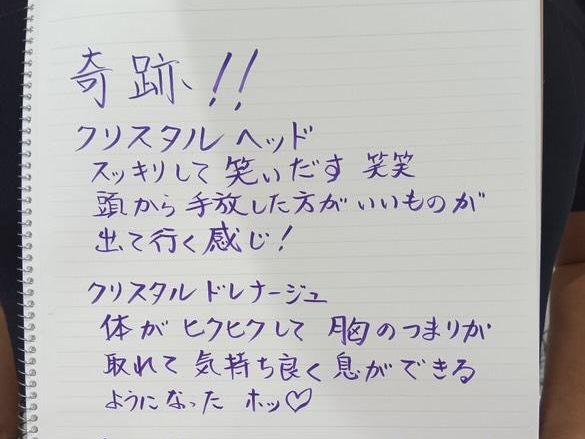 奇跡、!!
クリスタル ヘッド
スッキリして 笑いだす 笑笑
頭から 手放した方が いいものが
出て行く感じ!
クリスタル ドレナージュ
体が ヒクヒクして 胸のつまりが
取れて 気持ち良く 息ができる
ようになった ホッ♡